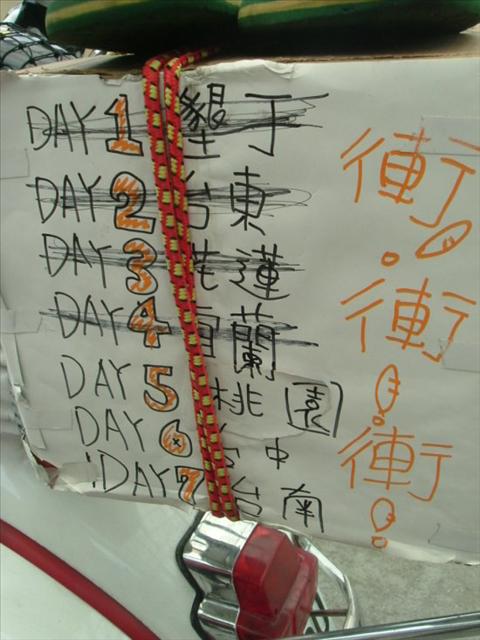 DAY 1 墾丁
DAY 2 台東
DAY 3 花蓮
DAY 4 宜蘭
DAY 5 桃園
DAY 6 台中
DAY 7 台南
衝!
衝!
衝!